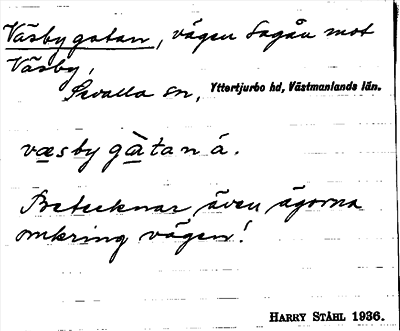 Väsbygatan, vägen Sagån mot
Väsby,
Sevalla sn, Yttertjurbo hd, Västmanlands län.
væsby gàtan á.
Betecknar även ägorna
omkring vägen!
HARRY STÅHL 1936.